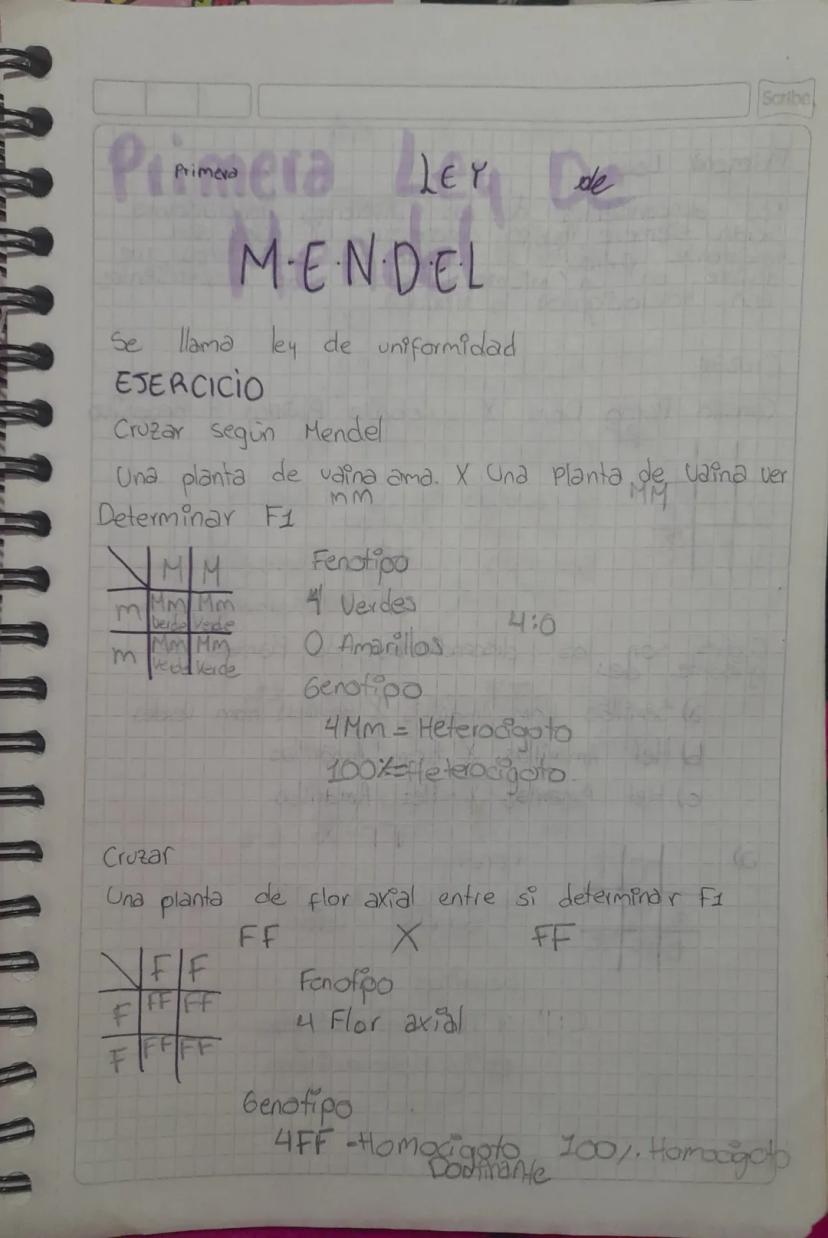 Scribe
Primera Ley De
Mendel
Primera LEY de
M.E.N.D.E.L
Se llama ley de uniformidad
EJERCICIO
Cruzar según Mendel
Una planta de vaina ama. X Una planta de vaina ver
mm MM
Determinar F1
M M
m Mm Mm
verde verde
m Mm Mm
verde verde
Fenotipo
4 Verdes
0 Amarillos
4:0
Genotipo
4Mm = Heterocigoto
100%=Heterocigoto.
Cruzar
Una planta de flor axial entre si determinar F1
FF X FF
F F
F FF FF
F FF FF
Fenotipo
4 Flor axial
Genotipo
4FF -Homocigoto 100%. Homocigoto
Dominante